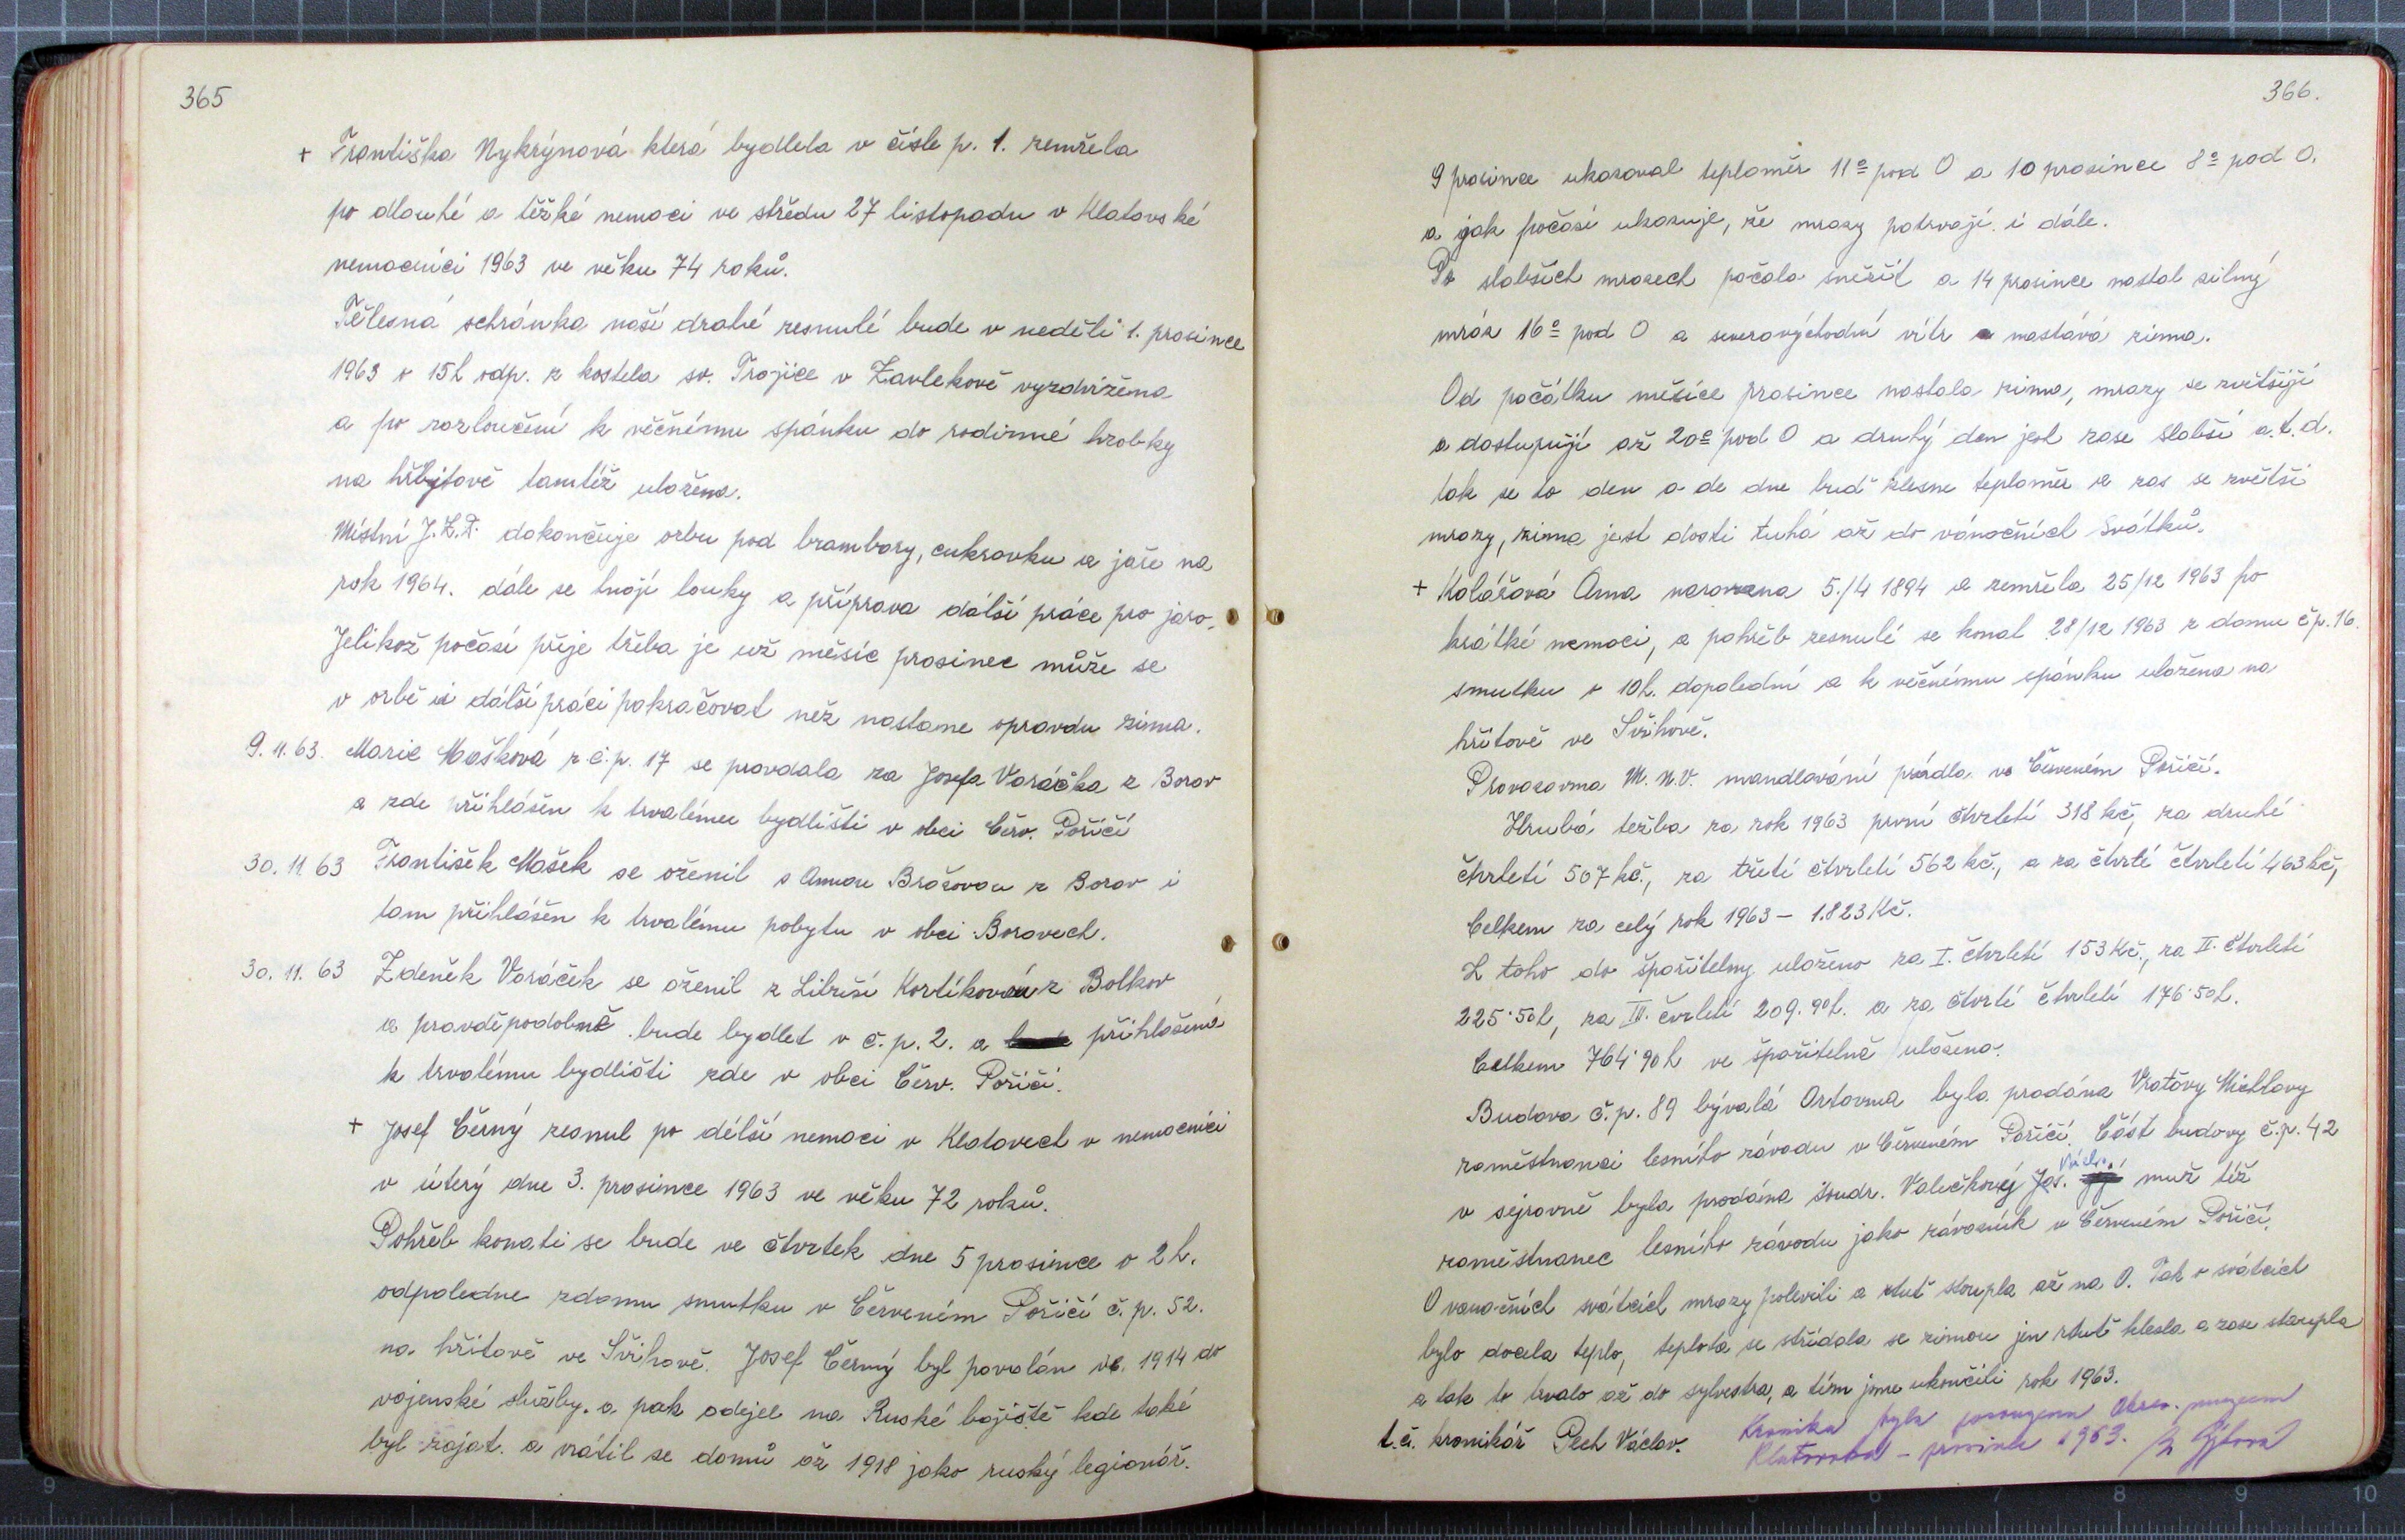 365
+ Františka Nykrýnová která bydlela v čísle p. 1. zemřela
po dlouhé a těžké nemoci ve středu 27 listopadu v Klatovské
nemocnici 1963 ve věku 74 roků.
Tělesná schránka naší drahé zesnulé bude v neděli 1. prosince
1963 v 15h odp. z kostela sv. Trojice v Zavlekově vyzdvižena
a po rozloučení k věčnému spánku do rodinné hrobky
na hřbitově tamtéž uložena.
Místní J.Z.D. dokončuje orbu pod brambory, cukrovku a jaře na
rok 1964. dále se hnojí louky a příprava dálší práce pro jaro.
Jelikož počasí přeje třeba je už měsíc prosinec může se
v orbě i dálší práci pokračovat než nastane opravdu zima.
9. 11. 63. Marie Mašková z č.p. 17 se provdala za Josefa Voráčka z Borov
a zde přihlášen k trvalému bydlišti v obci Červ. Poříčí
30. 11. 63 František Mašek se oženil s Annou Brožovou z Borov i
tam přihlášen k trvalému pobytu v obci Borovech.
30. 11. 63 Zdeněk Voráček se oženil z Libuší Kortíkovou z Bolkov
a pravděpodobně bude bydlet v č.p. 2. a přihlášená
k trvalému bydlišti zde v obci Červ. Poříčí.
+ Josef Černý zesnul po délší nemoci v Klatovech v nemocnici
v úterý dne 3. prosince 1963 ve věku 72 roků.
Pohřeb konati se bude ve čtvrtek dne 5 prosince v 2 h.
odpoledne zdomu smutku v Červeném Poříčí č. p. 52.
na hřitově ve Švihově. Josef Černý byl povolán 1914 do
vojenské služby. a pak odejel na Ruské bojiště kde také
byl zajat. a vrátil se domů až 1918 jako ruský legionář.
366.
9 prosince ukazoval teploměr 11° pod 0 a 10 prosince 8° pod 0.
a jak počasí ukazuje, že mrazy potrvají i dále.
Po slabších mrazech počalo sněžit a 14 prosince nastal silný
mráz 16° pod 0 a severovýchodní vítr a nastává zima.
Od počátku měsíce prosince nastala zima, mrazy se zvětšují
a dostupují až 20° pod 0 a druhý den jest zase slabší a.t.d.
tak se to den a de dne buď klesne teploměr a zas se zvětší
mrazy, zima jest dosti tuhá až do vánočních Svátků.
+ Kolářová Anna narozena 5./4 1894 a zemřela 25/12 1963 po
krátké nemoci, a pohřeb zesnulé se konal 28/12 1963 z domu čp. 16.
smutku v 10h. dopolední a k věčnému spánku uložena na
hřitově ve Švihově.
Provozovna M.N.V. mandlování prádla ve Červeném Poříčí.
Hrubá težba za rok 1963 první čtvrletí 318 kč, za druhé
čtvrletí 507 kč., za třetí čtvrletí 562 kč., a za čtvrté čtvrletí 463 kč,
Celkem za celý rok 1963 – 1.823 Kč.
Z toho do spořitelny uloženo za I. čtvrletí 153 Kč., za II. čtvrletí
225·50h, za III. čvrletí 209.90h. a za čtvrté čtvrletí 176·50h.
Celkem 764·90h ve spořitelně uloženo.
Budova č.p. 89 bývalá Ortovna byla prodána Vraťovy Michlovy
zaměstnanci lesního závodu v Červeném Poříčí. Část budovy č.p. 42
v sejrovně byla prodána soudr. Valečkový Jos. muž též
zaměstnanec lesního závodu jako závozník v Červeném Poříčí.
O vanočních svátcích mrazy polevili a rtuť stoupla až na 0. Tak o svátcích
bylo docela teplo, teplota se střídala se zimou jen rtuť klesla a zase stoupla
a tak to trvalo až do sylvestra, a tím jsme ukončili rok 1963.
t.č. kronikář Pech Václav.
Kronika byla okres. muzeem
Klatovska – prosinec 1963.